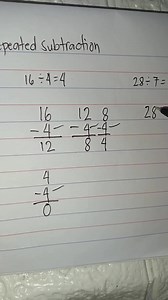 epeated subtraction
16 ÷ 4 = 4 28 ÷ 7 =
16 12 8 28
- 4 - 4 - 4
12 8 4
4
- 4
0